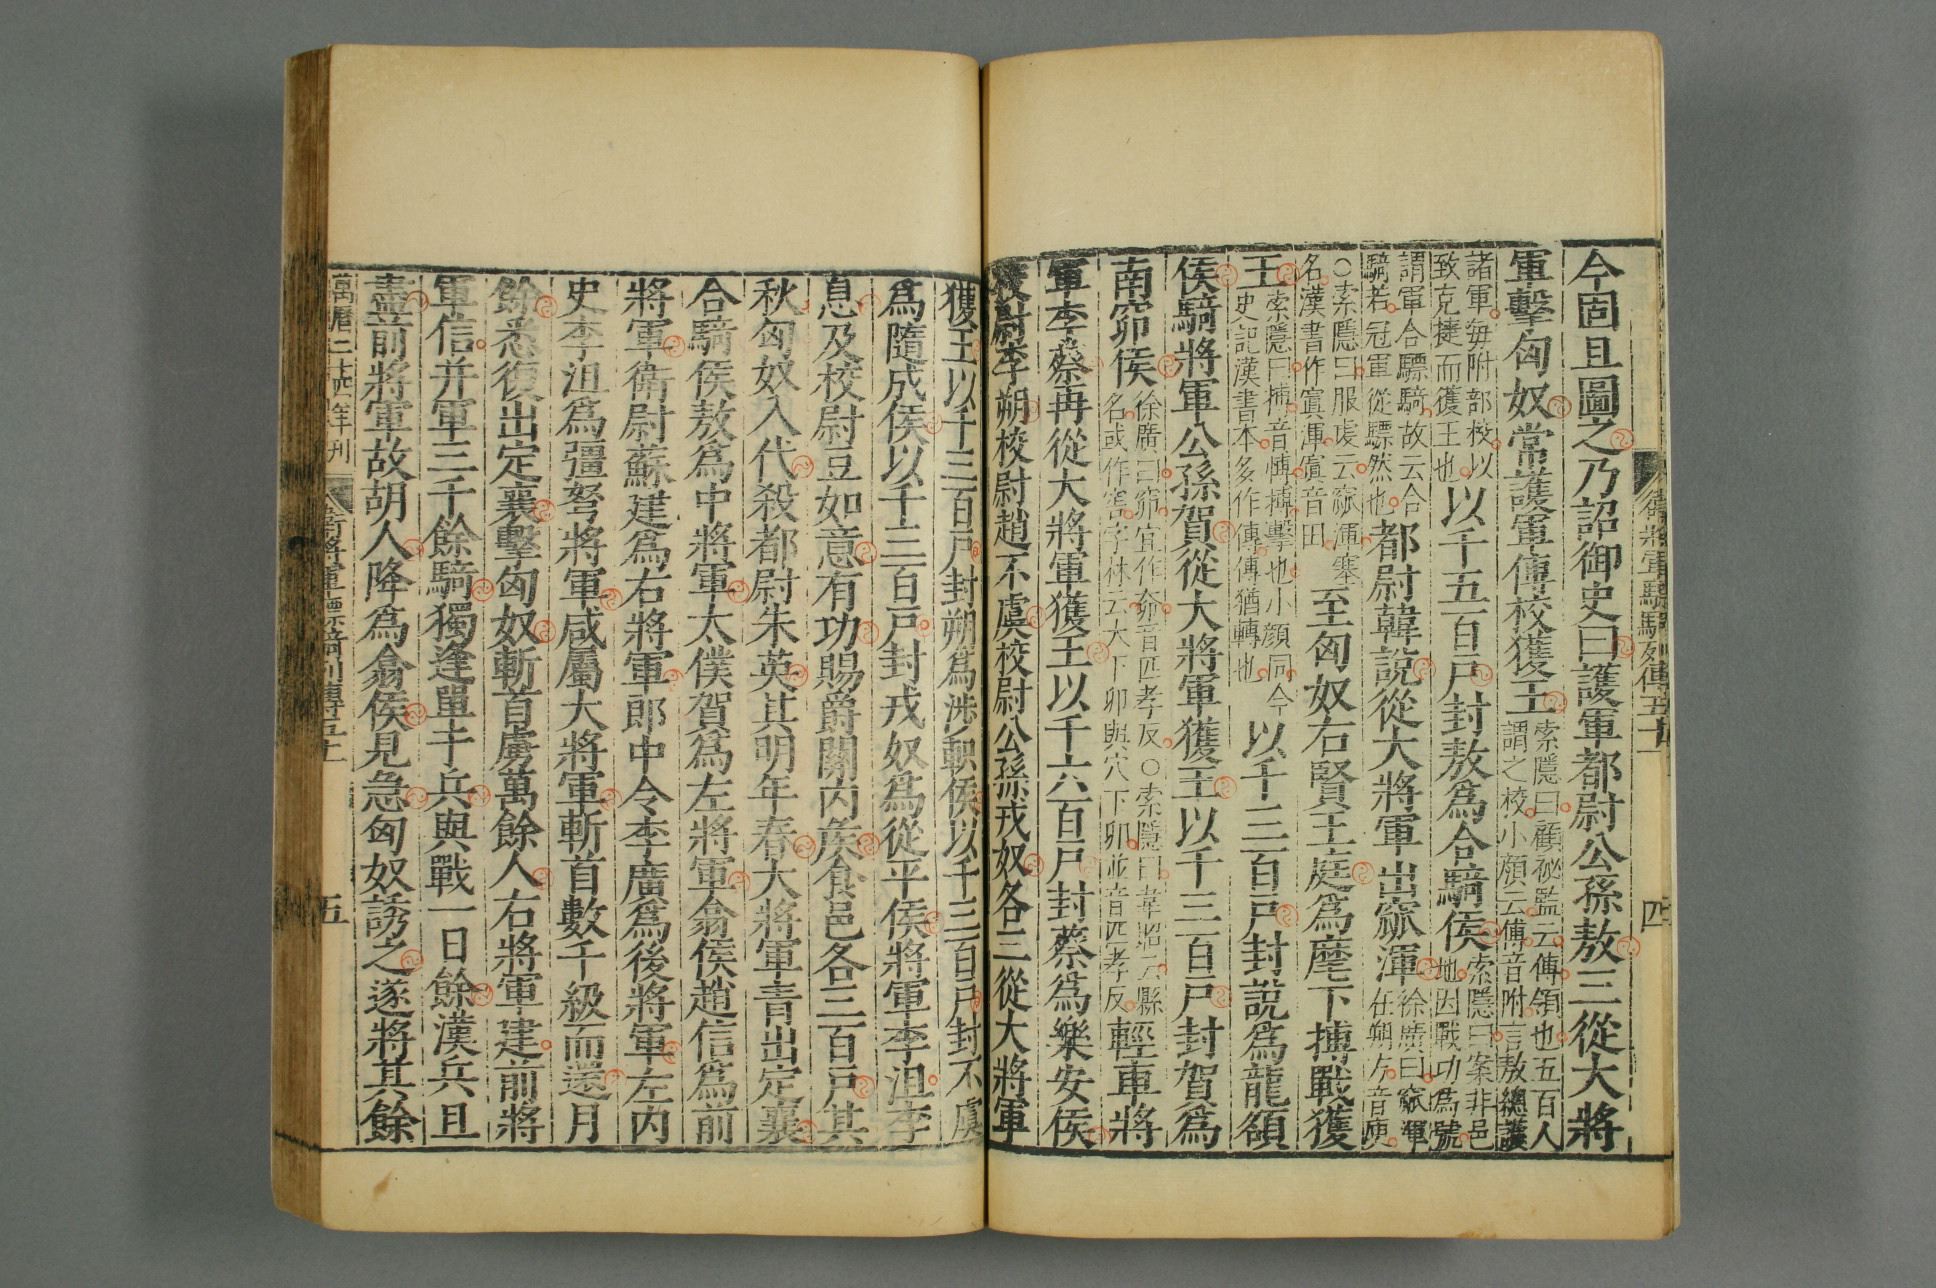 衛將軍驃騎列傳五十一 四
今固且圖之乃詔御史曰護軍都尉公孫敖三從大將
軍擊匈奴常護軍傅校獲王索隱曰顧祕監云傅領也五百人
謂之校小顔云傅音附言敖總護
諸軍每附部校以
致克捷而獲王也以千五百戶封敖爲合騎侯索隱曰案非邑
地因戰功爲號
謂軍合驃騎故云合
騎若冠軍從驃然也都尉韓說從大將軍出窳渾徐廣曰窳渾
在朔方音庾
○索隱曰服虔云窳渾塞
名漢書作窴渾窴音田至匈奴右賢王庭爲麾下搏戰獲
王索隱曰搏音博搏擊也小顔同今
史記漢書本多作傅傅猶轉也以千三百戶封說爲龍頟
侯騎將軍公孫賀從大將軍獲王以千三百戶封賀爲
南窌侯徐廣曰窌宜作奅音匹孝反○索隱曰韋昭云縣
名或作窖字林云大下卯與穴下卯並音匹孝反輕車將
軍李蔡再從大將軍獲王以千六百戶封蔡爲樂安侯
校尉李朔校尉趙不虞校尉公孫戎奴各三從大將軍
獲王以千三百戶封朔爲涉軹侯以千三百戶封不虞
爲隨成侯以千三百戶封戎奴爲從平侯將軍李沮李
息及校尉豆如意有功賜爵關內侯食邑各三百戶其
秋匈奴入代殺都尉朱英其明年春大將軍青出定襄
合騎侯敖爲中將軍太僕賀爲左將軍翕侯趙信爲前
將軍衛尉蘇建爲右將軍郎中令李廣爲後將軍左內
史李沮爲彊弩將軍咸屬大將軍斬首數千級而還月
餘悉復出定襄擊匈奴斬首虜萬餘人右將軍建前將
軍信并軍三千餘騎獨逢單于兵與戰一日餘漢兵且
盡前將軍故胡人降爲翕侯見急匈奴誘之遂將其餘
萬曆二十四年刊 衛將軍驃騎列傳五十一 五